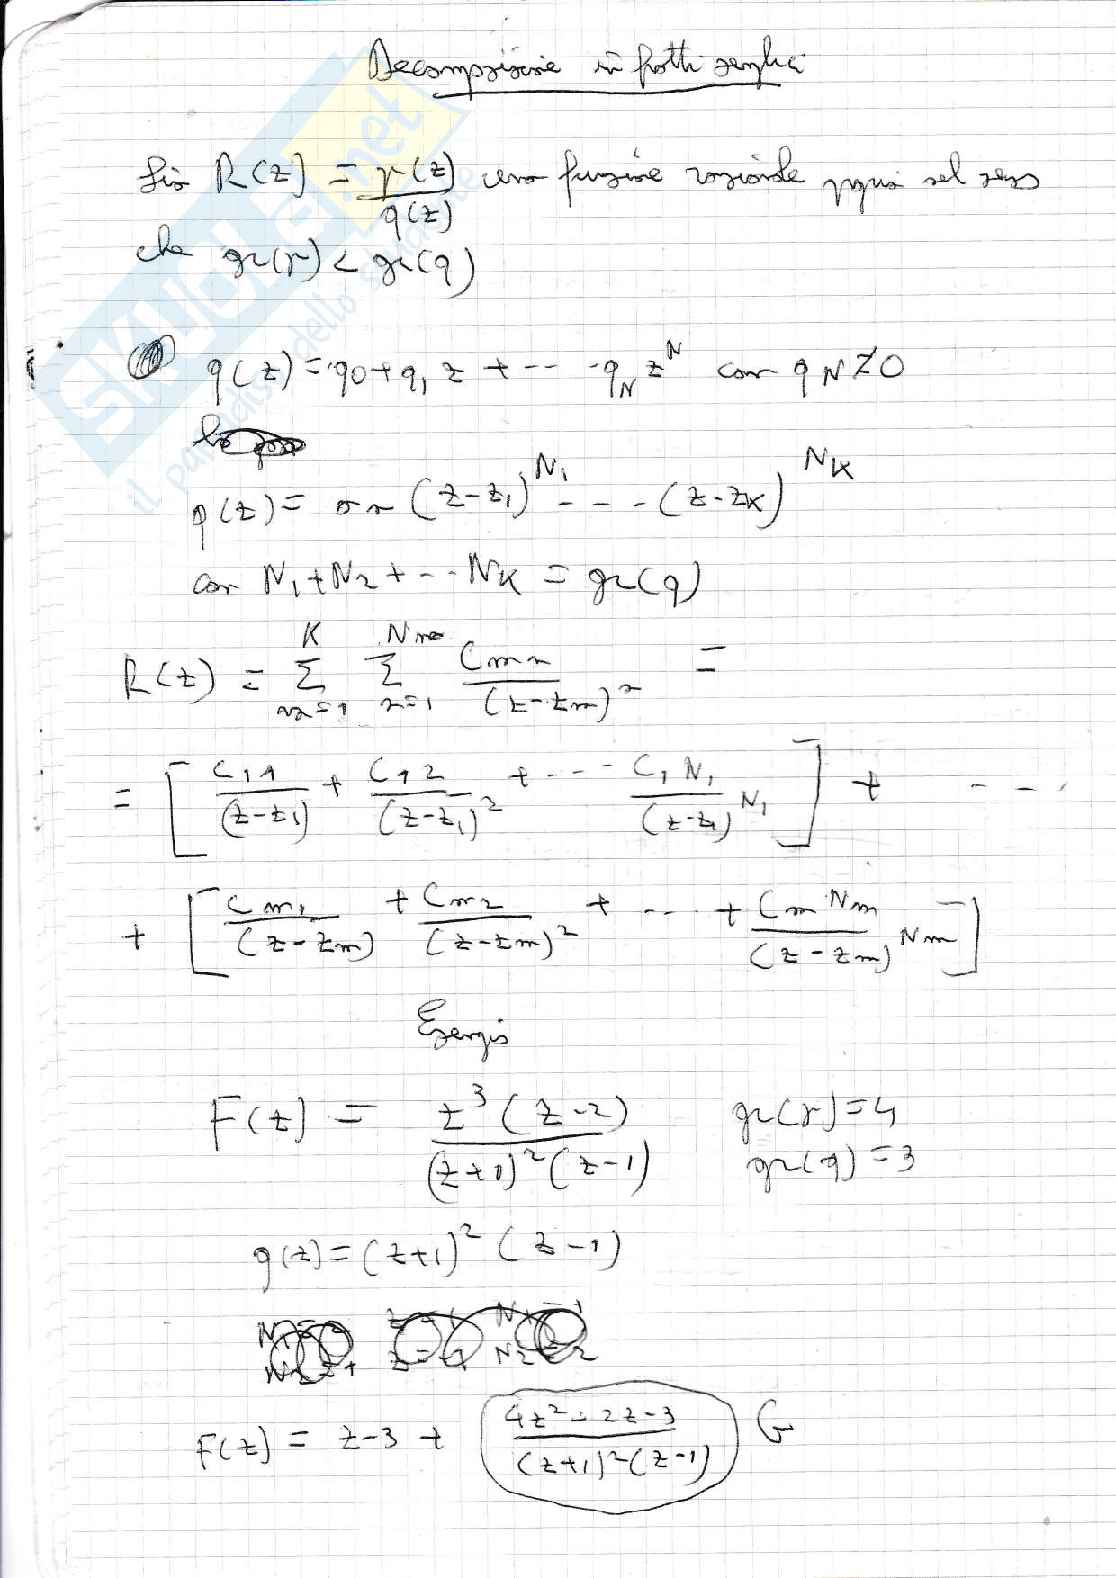 Decomposizione in fratti semplici
Sia R(z) = p(z)/q(z) una funzione razionale propria nel senso
che gr(p) < gr(q)
q(z) = q0 + q1 z + --- qN z^N con qN ≠ 0
q(z) = (z-z1)^N1 --- (z-zK)^NK
con N1 + N2 + -- NK = gr(q)
R(z) = Σ_{m=1}^{K} Σ_{n=1}^{Nm} Cmn/(z-zm)^n =
= [C11/(z-z1) + C12/(z-z1)^2 + --- C1N1/(z-z1)^N1] + ----
+ [Cm1/(z-zm) + Cm2/(z-zm)^2 + --- + CmNm/(z-zm)^Nm]
Esercizio
F(z) = z^3(z-2)/((z+1)^2(z-1)) gr(p)=4
gr(q)=3
q(z) = (z+1)^2 (z-1)
F(z) = z-3 + (4z^2-2z-3)/((z+1)^2(z-1)) G
SKUOLA.net
il paradiso dello studente